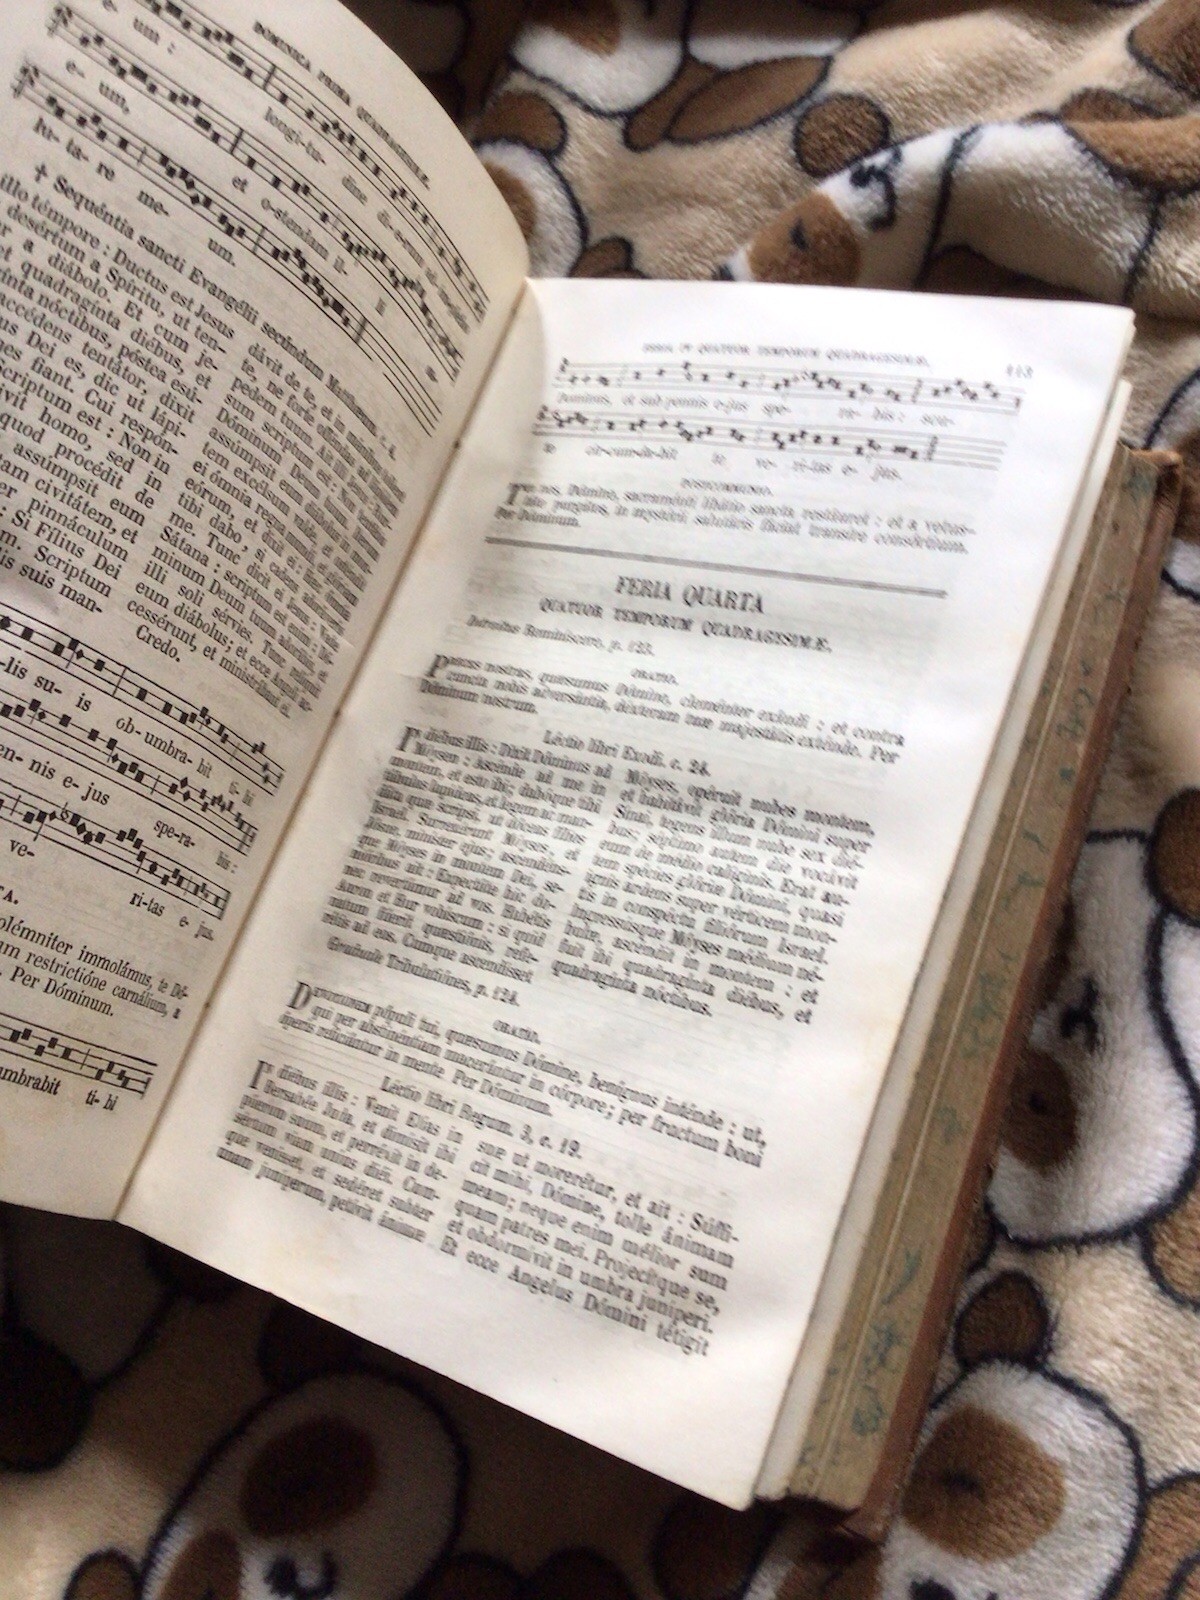 DOMINICA PRIMA QUADRAGESIMÆ.
e- um :
longi-tu- dine di-e-rum
e- um,
et o-stendam il- li
lu- ta- re me- um.
✝ Sequéntia sancti Evangélii secúndum Matthæum. c. 4.
illo témpore : Ductus est Jesus
desértum a Spíritu, ut ten-
a diábolo. Et cum je-
et quadragínta diébus, et
nóctibus, póstea esu-
accédens tentátor, dixit
Dei es, dic ut lápi-
fiant. Cui respón-
Scriptum est : Non in
homo, sed in
quod procédit de
assúmpsit eum
civitátem, et
pinnáculum
: Si Fílius Dei
Scriptum
suis man-
dávit de te, et in mánibus tollent
te, ne forte offéndas ad lápidem
pedem tuum. Ait illi Jesus : Rur-
sum scriptum est : Non tentábis
Dóminum Deum tuum. Iterum
assúmpsit eum diábolus in mon-
tem excélsum valde, et osténdit
ei ómnia regna mundi, et glóriam
eórum, et dixit ei : Hæc ómnia
tibi dabo, si cadens adoráveris
me. Tunc dicit ei Jesus : Vade
Sátana : scriptum est enim : Dó-
minum Deum tuum adorábis, et
illi soli sérvies. Tunc relíquit
eum diábolus; et ecce Angeli ac-
cessérunt, et ministrábant ei.
Credo.
-lis su- is ob-umbra-bit ti-bi
-nis e-jus spe-ra- bis :
ve- ri-tas e- jus.
solémniter immolámus, te Dó-
restrictióne carnálium, a
Per Dóminum.
umbrabit ti- bi
FERIA IV QUATUOR TEMPORUM QUADRAGESIMÆ. 113
Dominus, et sub pennis e-jus spe- ra- bis : scu-
to cir-cum-da-bit te ve- ri-tas e- jus.
POSTCOMMUNIO.
Tui nos, Dómine, sacraménti libátio sancta restáuret : et a vetus-
táte purgátos, in mystérii salutáris fáciat transíre consórtium.
Per Dóminum.
FERIA QUARTA
QUATUOR TEMPORUM QUADRAGESIMÆ.
Introitus Reminiscere, p. 123.
ORATIO.
Preces nostras, quæsumus Dómine, cleménter exáudi : et contra
cuncta nobis adversántia, déxteram tuæ majestátis exténde. Per
Dóminum nostrum.
Léctio libri Exodi. c. 24.
In diébus illis : Dixit Dóminus ad
Móysen : Ascénde ad me in
montem, et esto ibi; dabóque tibi
tábulas lapídeas, et legem ac man-
dáta quæ scripsi, ut dóceas fílios
Israel. Surrexérunt Móyses, et
Jósue, miníster ejus; ascendéns-
que Móyses in montem Dei, se-
nióribus ait : Expectáte hic do-
nec revertámur ad vos. Habétis
Aaron et Hur vobíscum : si quid
natum fúerit quæstiónis, refe-
rétis ad eos. Cumque ascendísset
Móyses, opéruit nubes montem,
et habitávit glória Dómini super
Sinai, tegens illum nube sex dié-
bus; séptimo autem die vocávit
eum de médio calíginis. Erat au-
tem spécies glóriæ Dómini, quasi
ignis ardens super vérticem mon-
tis in conspéctu filiórum Israel.
Ingressúsque Móyses médium né-
bulæ, ascéndit in montem : et
fuit ibi quadragínta diébus, et
quadragínta nóctibus.
Graduale Tribulatiónes, p. 124.
ORATIO.
Devotionem pópuli tui, quæsumus Dómine, benígnus inténde : ut,
qui per abstinéntiam macerántur in córpore; per fructum boni
óperis reficiántur in mente. Per Dóminum.
Léctio libri Regum. 3, c. 19.
In diébus illis : Venit Elías in
Bersabée Juda, et dimísit ibi
púerum suum, et perréxit in de-
sértum viam unius diéi. Cum-
que venísset, et sedéret subter
unam juníperum, petívit ánimæ
suæ ut morerétur, et ait : Súffi-
cit mihi, Dómine, tolle ánimam
meam; neque enim mélior sum
quam patres mei. Projecítque se,
et obdormívit in umbra juníperi.
Et ecce Angelus Dómini tétigit